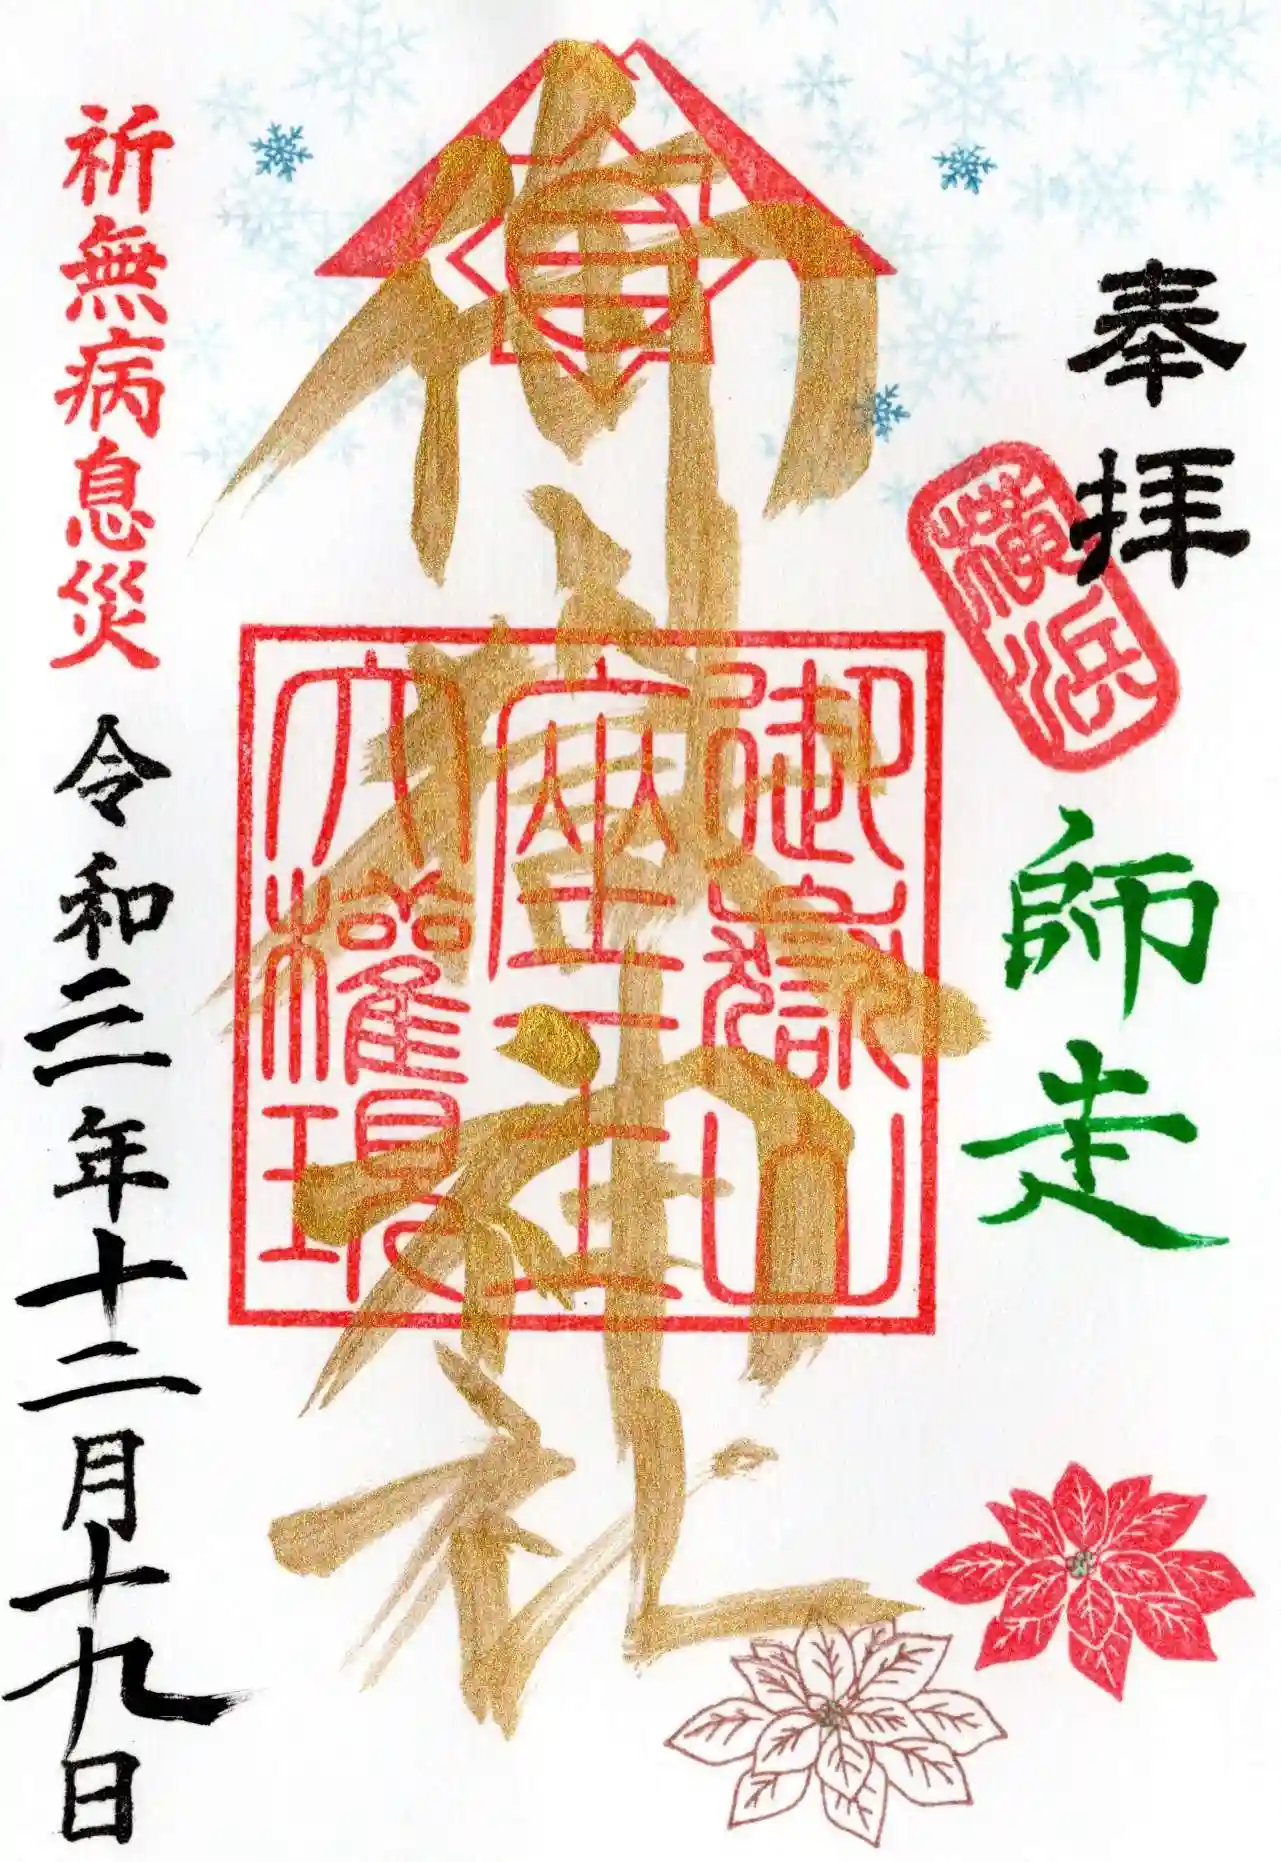 奉拝
横浜
師走
御嶽神社
御嶽山
座王
大権現
祈無病息災
令和三年十二月十九日